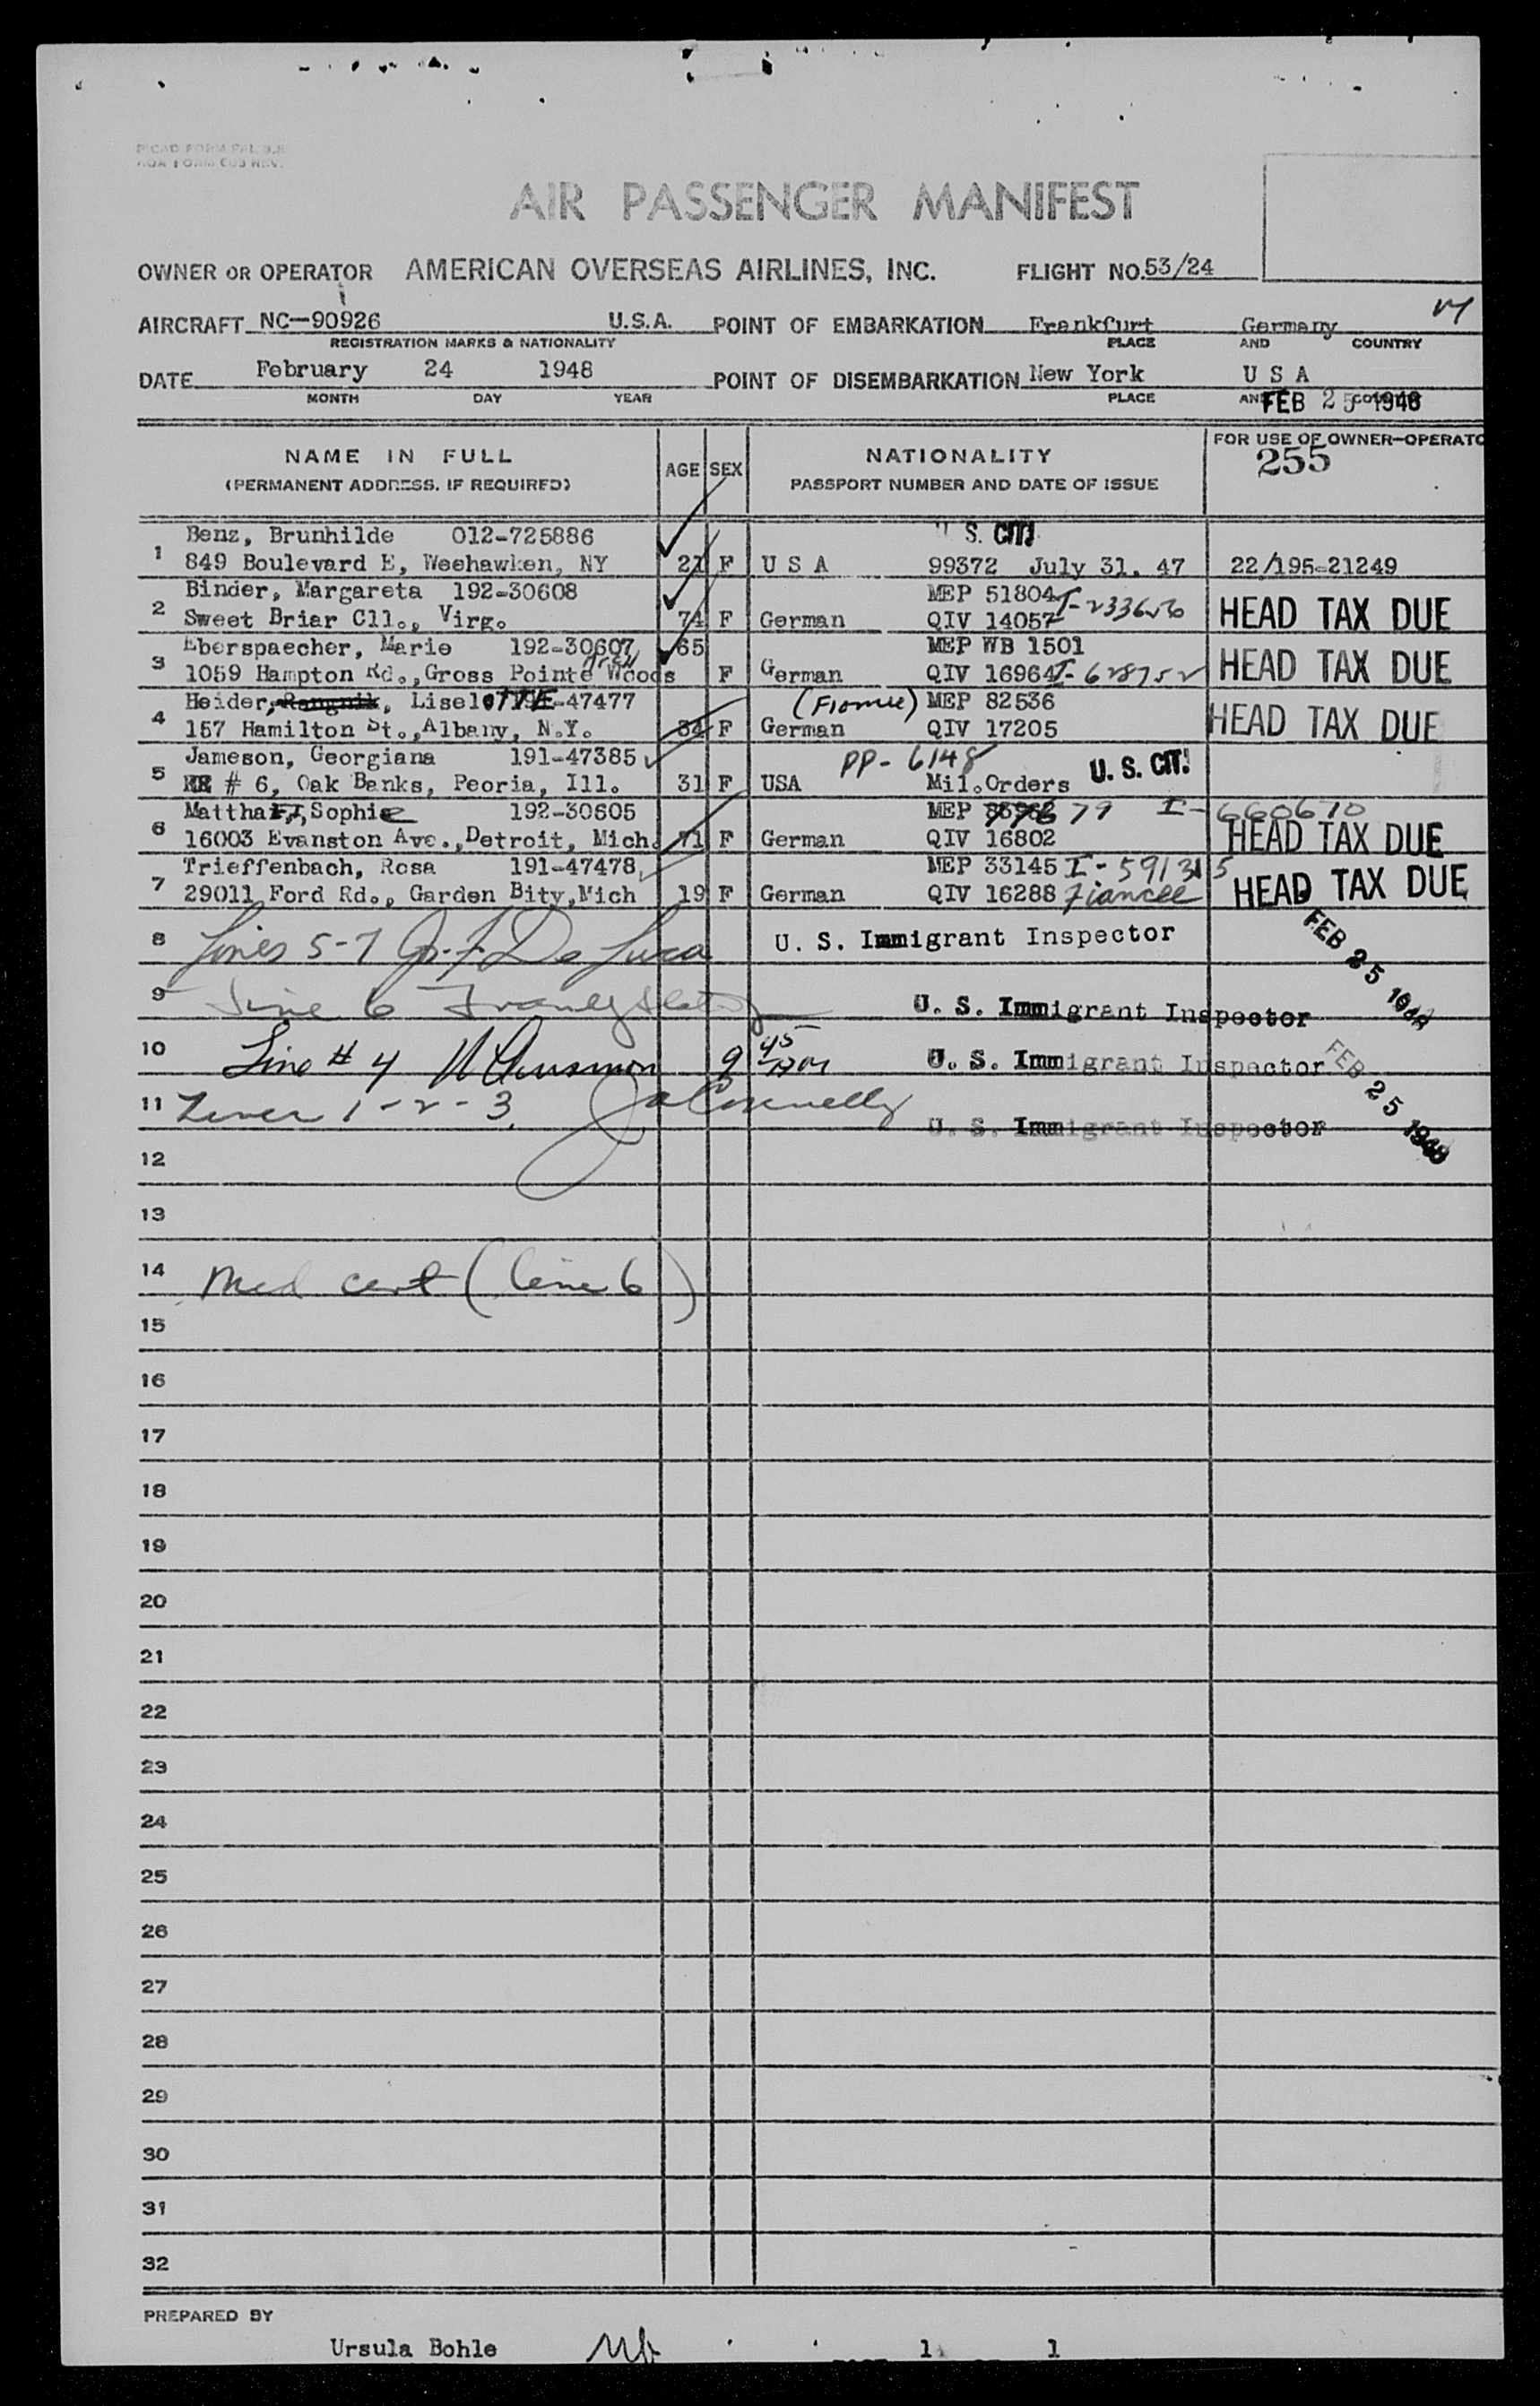 AIR PASSENGER MANIFEST
OWNER OR OPERATOR AMERICAN OVERSEAS AIRLINES, INC. FLIGHT NO. 53/24
AIRCRAFT NC-90926 U.S.A. POINT OF EMBARKATION Frankfurt Germany
REGISTRATION MARKS & NATIONALITY PLACE AND COUNTRY
DATE February 24 1948 POINT OF DISEMBARKATION New York U S A
MONTH DAY YEAR PLACE AND
FEB 25 1948
NAME IN FULL AGE SEX NATIONALITY FOR USE OF OWNER-OPERATO
(PERMANENT ADDRESS. IF REQUIRED) PASSPORT NUMBER AND DATE OF ISSUE 255
1 Benz, Brunhilde 012-725886 U. S. CIT.
849 Boulevard E, Weehawken, NY 21 F U S A 99372 July 31. 47 22/195-21249
2 Binder, Margareta 192-30608 MEP 51804 I-233656
Sweet Briar Cll., Virg. 74 F German QIV 14057 HEAD TAX DUE
3 Eberspaecher, Marie 192-30607 65 MEP WB 1501
1059 Hampton Rd., Gross Pointe Woods F German QIV 16964 I-628752 HEAD TAX DUE
4 Heider, Liselotte -47477 MEP 82536
157 Hamilton St., Albany, N.Y. 34 F German QIV 17205 HEAD TAX DUE
5 Jameson, Georgiana 191-47385 PP-6148 U. S. CIT.
RR # 6, Oak Banks, Peoria, Ill. 31 F USA Mil.Orders
6 Matthaei, Sophie 192-30605 MEP 79 I-660670
16003 Evanston Ave., Detroit, Mich. 71 F German QIV 16802 HEAD TAX DUE
7 Trieffenbach, Rosa 191-47478 MEP 33145 I-591315
29011 Ford Rd., Garden Bity, Mich 19 F German QIV 16288 Fiancee HEAD TAX DUE
8 Lines 5-7 De Luca U. S. Immigrant Inspector FEB 25 1948
9 Line 6 U. S. Immigrant Inspector
10 Line # 4 9 45 U. S. Immigrant Inspector FEB 25 1948
11 Lines 1-2-3 Connelly U. S. Immigrant Inspector
12
13
14 Med cert (line 6)
15
16
17
18
19
20
21
22
23
24
25
26
27
28
29
30
31
32
PREPARED BY
Ursula Bohle 1 1